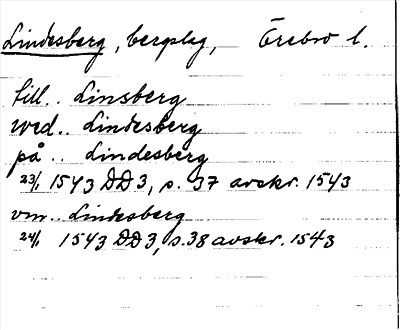 Lindesberg, bergslag, Örebro l.
till.. Linsberg
wed.. Lindesberg
på.. Lindesberg
23/1 1543 DD3, s. 37 avskr. 1543
vm.. Lindesberg
24/1 1543 DD3, s. 38 avskr. 1543